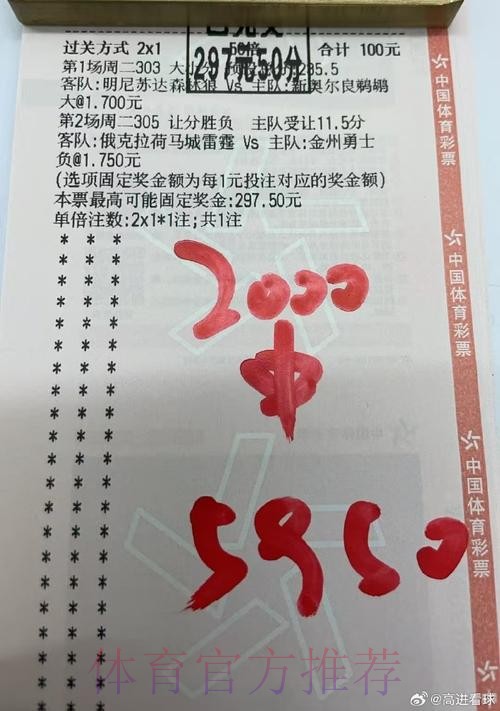 过关方式 2x1 50倍 合计 100元
297元50分
第1场周二303 大小
客队:明尼苏达森林狼 Vs 主队:新奥尔良鹈鹕
大@1.700元
第2场周二305 让分胜负 主队受让11.5分
客队:俄克拉荷马城雷霆 Vs 主队:金州勇士
负@1.750元
(选项固定奖金额为每1元投注对应的奖金额)
本票最高可能固定奖金:297.50元
单倍注数:2x1*1注;共1注
2000
中
5950
中国体育彩票
中国体育彩票
中国体育彩票
体育官方推荐
@高进看球